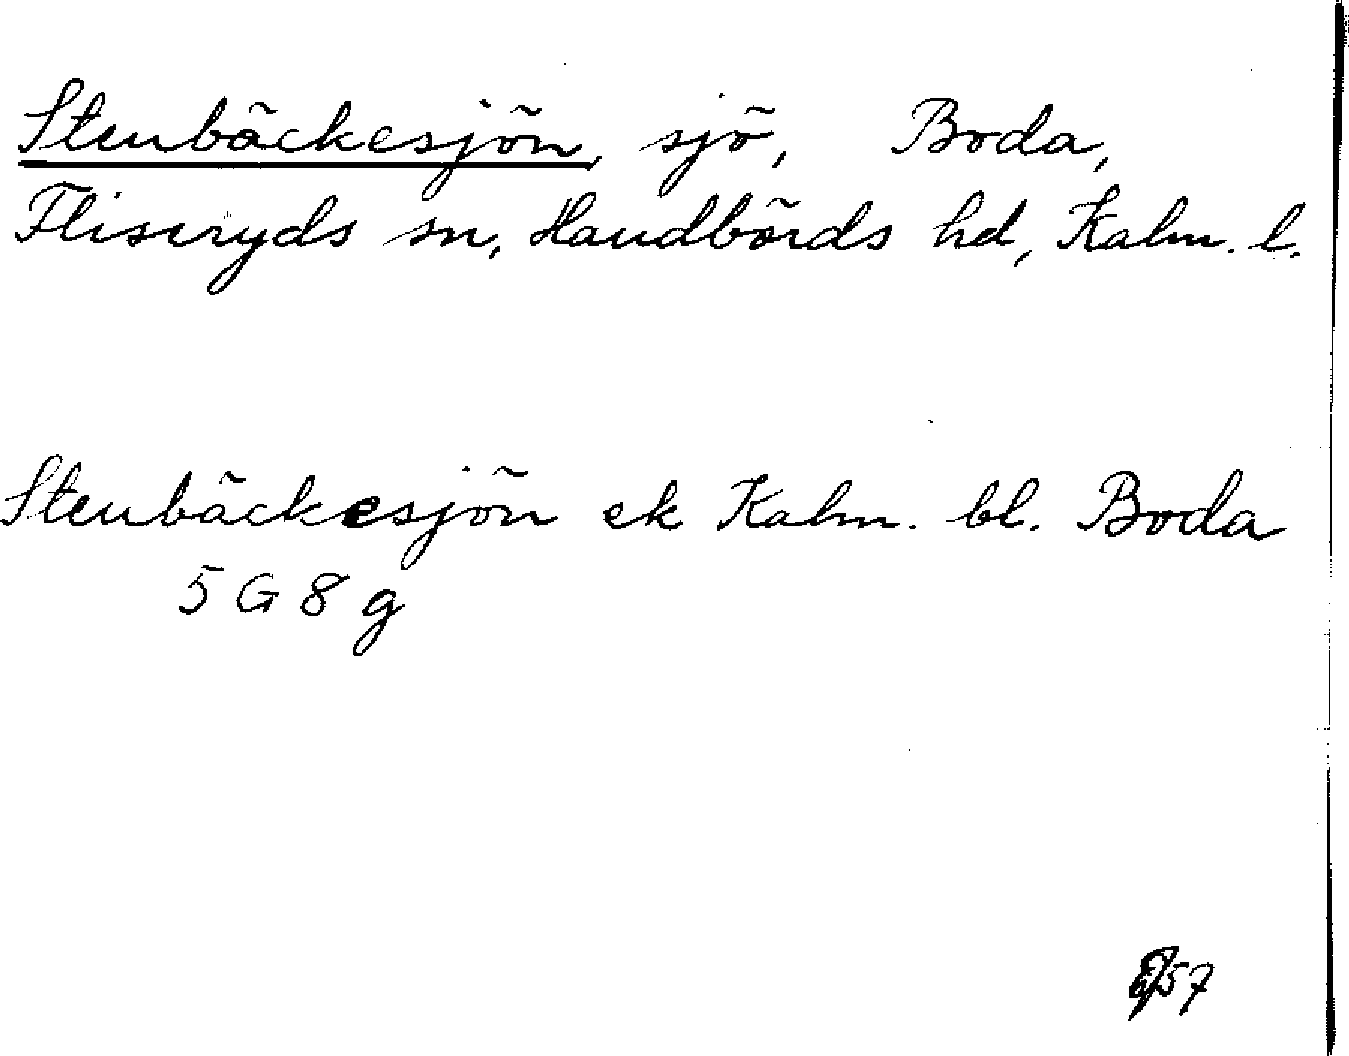 Stenbäckesjön, sjö, Boda,
Fliseryds sn, Handbörds hd, Kalm. l.
Stenbäckesjön ek Kalm. bl. Boda
5 G 8 g
57